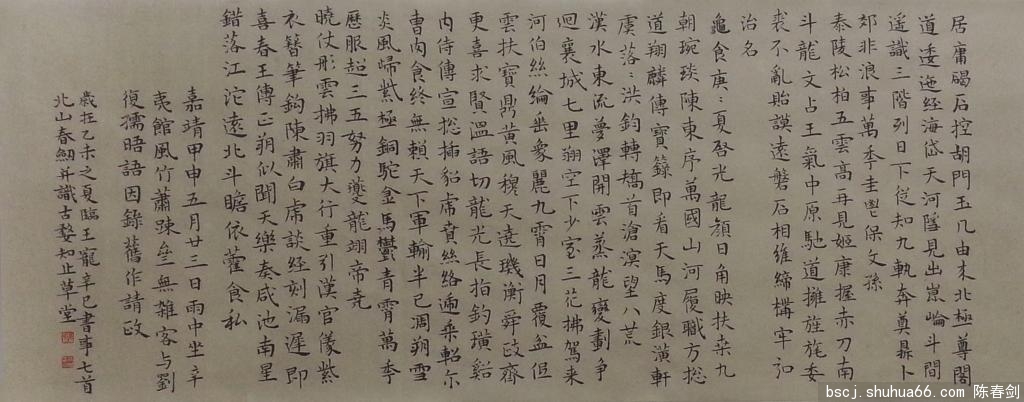 居庸碣石控胡門玉几由来北極尊閣
道逶迤经海岱天河隱見出崑崘斗間
遥識三階列日下從知九軌奔尊鼎卜
郊非浪事萬季圭鬯保文孫
泰陵松柏五雲髙再見姬康握赤刀南
斗龍文占王氣中原馳道擁旌旄委
裘不亂貽謨遠磐石相維締構牢
治名
龜食庚〻夏啓光龍顏日角映扶桒九
朝琬琰陳東序萬國山河履職方揔
道翔麟傳寶籙即看天馬度銀潢軒
虞落〻洪鈞轉橋首滄溟望八荒
漢水東流夢澤開雲蒸龍變劃争
迴襄城七里翔空下少室三花拂駕来
河伯絲綸垂象麗九霄日月覆盆但
雲扶寶鼎黄風穆天遠璣衡舜政齊
更喜求賢溫語切龍光長指釣璜谿
内侍傳宣揔插貂虎賁絲絡遍乗軺尔
曹肉食终無賴天下軍輸半已凋朔雪
炎風歸紫極銅駝金馬鬱青霄萬季
歷服超三五努力夔龍翊帝堯
曉仗彤雲拂羽旗大行重引漢官儀紫
衣簪筆鈎陳肅白虎談经刻漏遲即
喜春王傳正朔似聞天樂奏咸池南星
錯落江沱遠北斗瞻依藿食私
嘉靖甲申五月廿三日雨中坐辛
夷館風竹蕭踈坐無雜客与劉
復孺晤語因錄舊作請政
歳在乙未之夏臨王寵辛巳書事七首
北山春劒并識古婺知止草堂
bscj.shuhua66.com 陈春剑